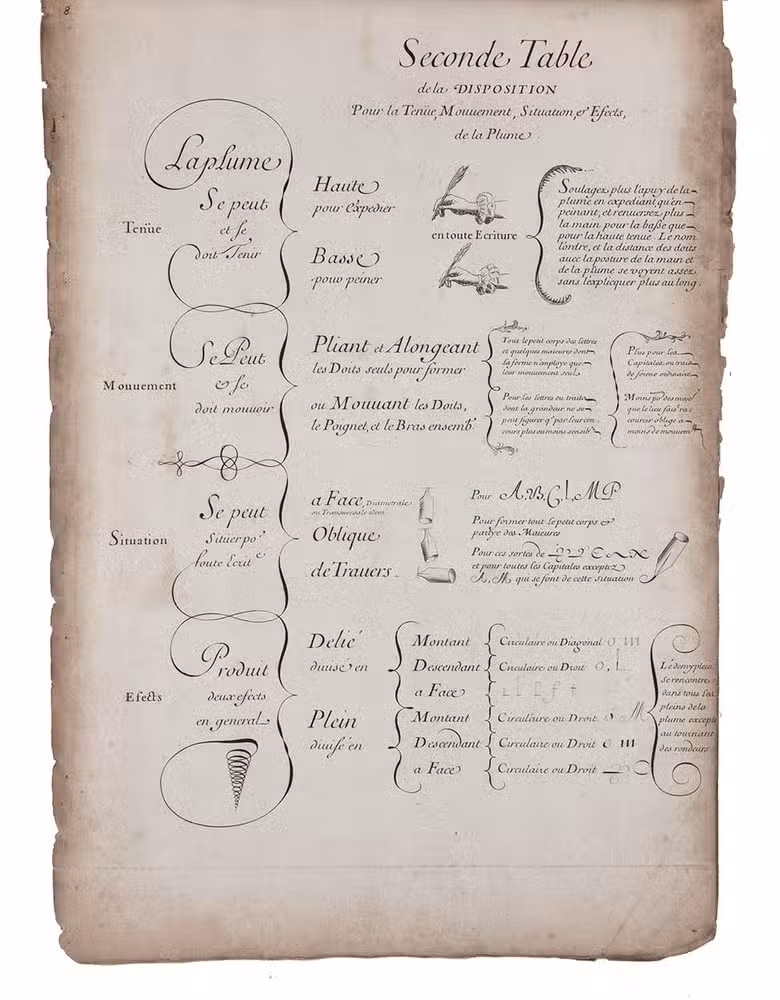 8
Seconde Table
de la DISPOSITION
Pour la Tenüe, Mouuement, Situation, et Efects,
de la Plume.
La plume
Tenüe
Se peut
et se
doit Tenir
Haute
pour Expedier
Basse
pour peiner
en toute Ecriture
Soulagez plus l'apuy de la
plume en expediant qu'en
peinant, et renuersez plus
la main pour la basse que
pour la haute tenue. Le nom
l'ordre, et la distance des doits
auec la posture de la main et
de la plume se voyent assez
sans l'explicquer plus au long.
Mouuement
Se Peut
et se
doit mouuoir
Pliant et Alongeant
les Doits seuls pour former
ou Mouuant les Doits,
le Poignet, et le Bras ensemb'
Tout le petit corps des lettres
et quelques maieures dont
la forme n'employe que
leur mouuement seul.
Pour les lettres ou traits
dont la grandeur ne se
peut figurer q' par leur con
cours plus ou moins sensib'
Plus pour les
Capitales, ou traits
de forme ordinaire
Moins po' des
que le lieu
oblige a
moins de mouuem'
Situation
Se peut
Situer po'
toute Ecrit^e
a Face, Diametrale
ou Transuersale idem
Oblique
de Trauers
Pour A, B, C, l, M P
Pour former tout le petit corps et
partye des Maieures
Pour ces sortes de
et pour toutes les Capitales exceptez
A, M, qui se font de cette situation
Efects
Produit
deux efects
en general
Delié
diuisé en
Montant
Circulaire ou Diagonal o, m
Descendant
Circulaire ou Droit o, l
a Face
Plein
diuisé en
Montant
Circulaire ou Droit o M
Descendant
Circulaire ou Droit o m
a Face
Circulaire ou Droit
Le demy plein
se rencontre
dans tous les
pleins de la
plume excepte
au tournant
des rondeurs